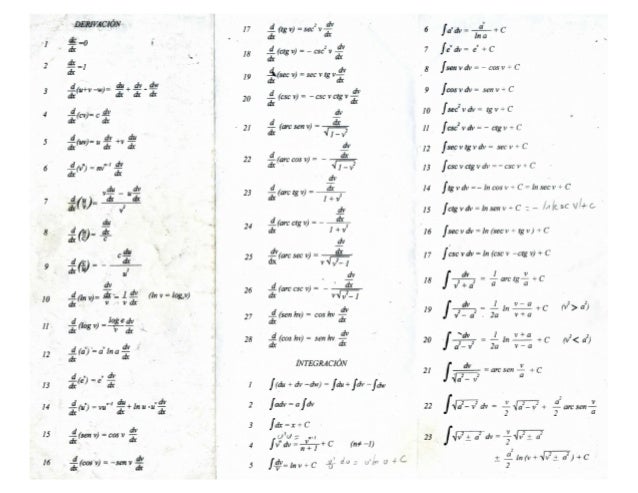 DERIVACIÓN
1 dc/dx =0
2 dx/dx =1
3 d/dx (u+v -w)= du/dx + dv/dx - dw/dx
4 d/dx (cv)= c dv/dx
5 d/dx (uv)= u dv/dx +v du/dx
6 d/dx (vⁿ) = nvⁿ⁻¹ dv/dx
7 d/dx (u/v)= (v du/dx - u dv/dx) / v²
8 d/dx (u/c)= (du/dx) / c
9 d/dx (c/u)= - (c du/dx) / u²
10 d/dx (ln v)= (dv/dx) / v = 1/v dv/dx (ln v = logₑv)
11 d/dx (log v)= log e / v dv/dx
12 d/dx (aᵛ) = aᵛ ln a dv/dx
13 d/dx (eᵛ) = eᵛ dv/dx
14 d/dx (uᵛ) = vuᵛ⁻¹ du/dx + ln u ·uᵛ dv/dx
15 d/dx (sen v) = cos v dv/dx
16 d/dx (cos v) = -sen v dv/dx
17 d/dx (tg v) = sec² v dv/dx
18 d/dx (ctg v) = - csc² v dv/dx
19 d/dx (sec v) = sec v tg v dv/dx
20 d/dx (csc v) = - csc v ctg v dv/dx
21 d/dx (arc sen v) = (dv/dx) / √(1-v²)
22 d/dx (arc cos v) = - (dv/dx) / √(1-v²)
23 d/dx (arc tg v) = (dv/dx) / (1+v²)
24 d/dx (arc ctg v) = - (dv/dx) / (1+v²)
25 d/dx (arc sec v) = (dv/dx) / (v√(v²-1))
26 d/dx (arc csc v) = - (dv/dx) / (v√(v²-1))
27 d/dx (sen hv) = cos hv dv/dx
28 d/dx (cos hv) = sen hv dv/dx
INTEGRACIÓN
1 ∫(du + dv -dw) = ∫du + ∫dv - ∫dw
2 ∫adv = a ∫dv
3 ∫dx = x + C
4 ∫vⁿ dv = vⁿ⁺¹/(n+1) + C (n≠ -1)
5 ∫dv/v = ln v + C
6 ∫aᵛ dv = aᵛ/ln a + C
7 ∫eᵛ dv = eᵛ + C
8 ∫sen v dv = - cos v + C
9 ∫cos v dv = sen v + C
10 ∫sec² v dv = tg v + C
11 ∫csc² v dv = - ctg v + C
12 ∫sec v tg v dv = sec v + C
13 ∫csc v ctg v dv = - csc v + C
14 ∫tg v dv = - ln cos v + C = ln sec v + C
15 ∫ctg v dv = ln sen v + C = - ln csc v + c
16 ∫sec v dv = ln (sec v + tg v) + C
17 ∫csc v dv = ln (csc v -ctg v) + C
18 ∫dv/(v²+a²) = 1/a arc tg v/a + C
19 ∫dv/(v²-a²) = 1/2a ln (v-a)/(v+a) + C (v² > a²)
20 ∫dv/(a²-v²) = 1/2a ln (v+a)/(v-a) + C (v² < a²)
21 ∫dv/√(a²-v²) = arc sen v/a + C
22 ∫√(a²-v²) dv = v/2 √(a²-v²) + a²/2 arc sen v/a
23 ∫√(v² ± a²) dv = v/2 √(v² ± a²)
± a²/2 ln (v + √(v² ± a²)) + C